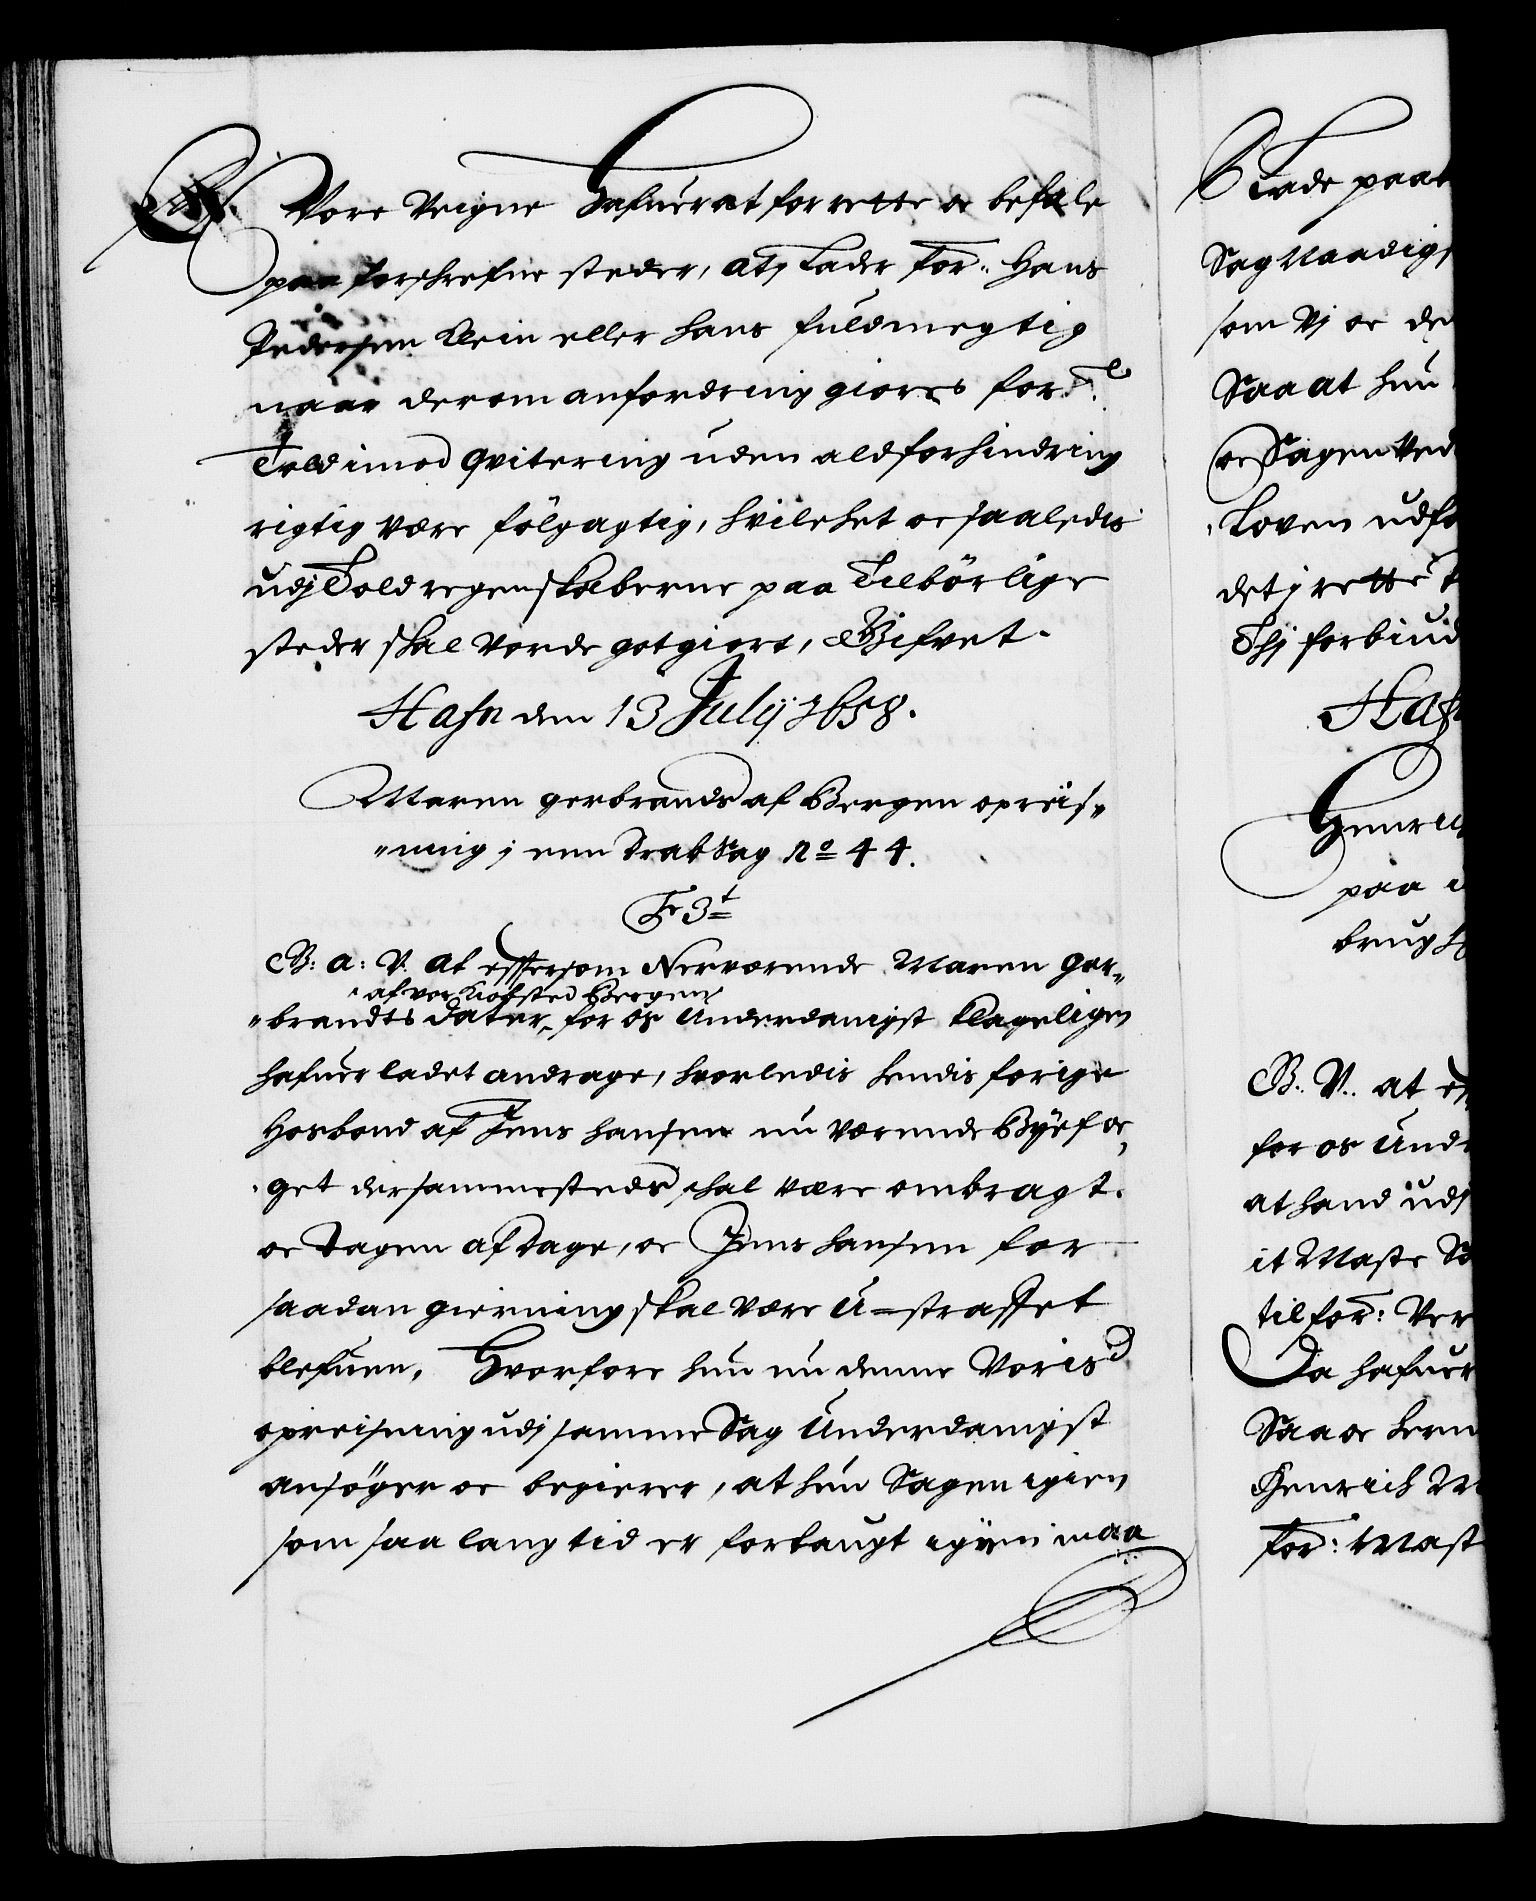 Vore Veigne hafuer at forrette oc befale
paa forskrefne steder, at j lader for: Hans
Pedersen Klein eller hans fuldmegtig
naar derom anfordring giores for:
Told imod Qvitering uden ald forhindring
rigtig være følgagtig, hvilchet oc saaledis
udj Told regenskaberne paa Tilbörlige
steder skal vorde gotgiort, Gifvet.
Hafn den 13 Julij 1658.
Maren gerbrands af Bergen opreis-
ning i een Drab Sag No 44.
F 3t
G: a: V. at effersom Nerværende Maren Ger-
af vor Kiøbsted Bergen
brandts dater, for os Underdanigst klageligen
hafuer ladet andrage, hvorledis hendis forige
Hosbond af Jens Hansen nu værende Byefo-
get dersammesteds, skal være ombragt.
oc tagen af dage, oc Jens Hansen for
saadan gierning skal være U-straffet
blefuen. Hvorfore hun nu denne Voris
opreisning udj samme Sag Underdanigst
ansöger oc begierer, at hun Sagen igien
som saa lang tid er fortaugt igien maa
Lade paa
Sag Naadigs
som Vj oc de
Saa at hun
oc Sagen Ved
Loven udfø
det j rette
Thj forbiud
Haf
Henrich
paa
brug
G.. V.. at ef
for os Und
at hand udj
it Maste
til for: Ver
Da hafuer
Saa oc hern
Henrich M
for: Mast